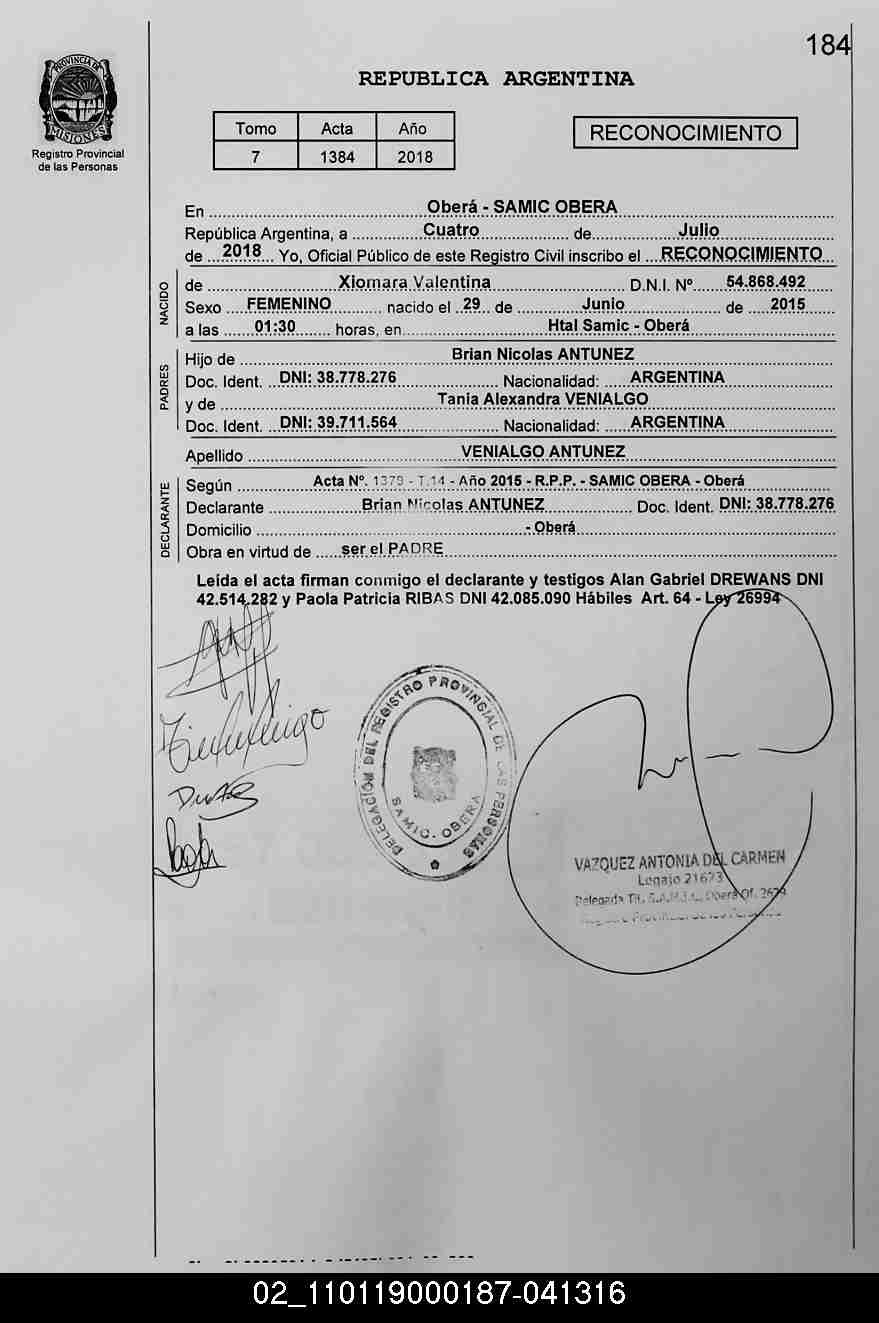 184
PROVINCIA DE
MISIONES
Registro Provincial
de las Personas
REPUBLICA ARGENTINA
Tomo Acta Año
7 1384 2018
RECONOCIMIENTO
En Oberá - SAMIC OBERA
República Argentina, a Cuatro de Julio
de 2018 Yo, Oficial Público de este Registro Civil inscribo el RECONOCIMIENTO
NACIDO
de Xiomara Valentina D.N.I. Nº 54.868.492
Sexo FEMENINO nacido el 29 de Junio de 2015
a las 01:30 horas, en Htal Samic - Oberá
PADRES
Hijo de Brian Nicolas ANTUNEZ
Doc. Ident. DNI: 38.778.276 Nacionalidad: ARGENTINA
y de Tania Alexandra VENIALGO
Doc. Ident. DNI: 39.711.564 Nacionalidad: ARGENTINA
Apellido VENIALGO ANTUNEZ
DECLARANTE
Según Acta Nº. 1379 - T.14 - Año 2015 - R.P.P. - SAMIC OBERA - Oberá
Declarante Brian Nicolas ANTUNEZ Doc. Ident. DNI: 38.778.276
Domicilio - Oberá
Obra en virtud de ser el PADRE
Leída el acta firman conmigo el declarante y testigos Alan Gabriel DREWANS DNI
42.514.282 y Paola Patricia RIBAS DNI 42.085.090 Hábiles Art. 64 - Ley 26994
DELEGACIÓN DEL REGISTRO PROVINCIAL DE LAS PERSONAS
SAMIC. OBERA
VAZQUEZ ANTONIA DEL CARMEN
Legajo 21673
Delegada Tit. S.A.M.I.C. Oberá Of. 2679
02_110119000187-041316